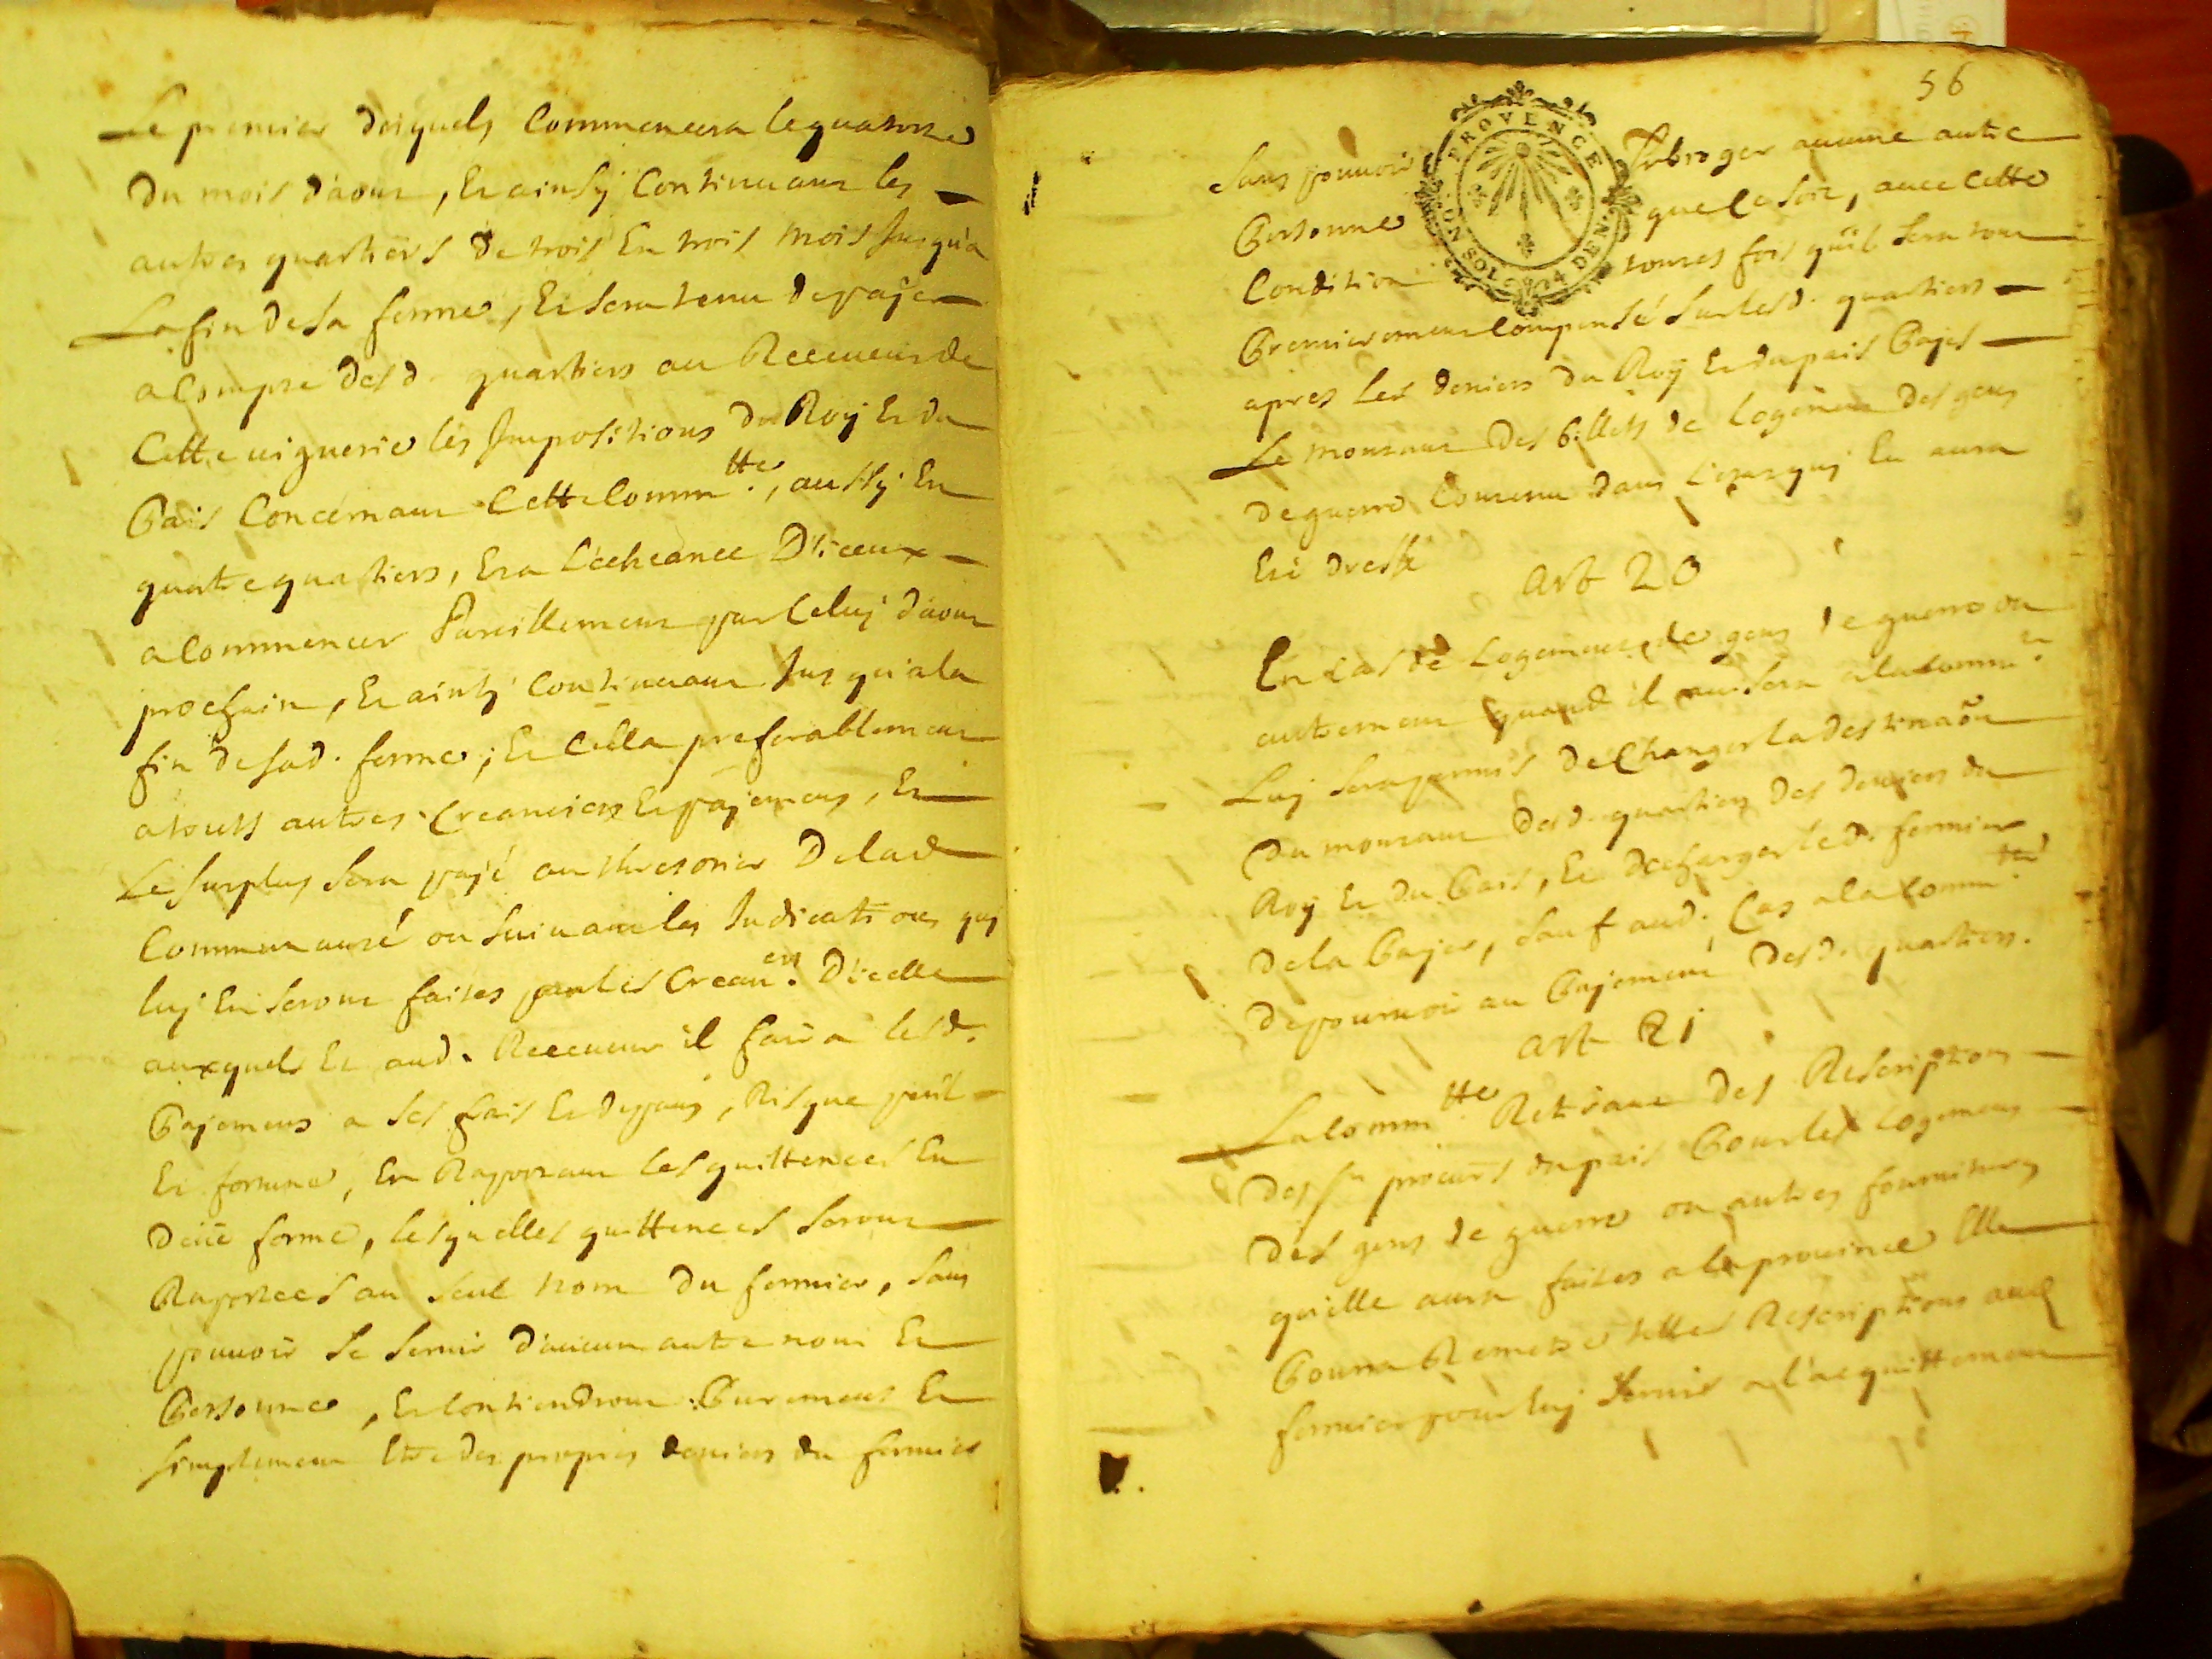 Le premier desquels Commencera lequatorze
du mois d'aout, Et ainsy Continuant les
autres quartiers de trois En trois mois Jusqu'a
La fin de sa ferme, Et sera tenu de payer
a Compte desd. quartiers au Receveur de
Cette viguerie les Impositions du Roy Et du
Pais Concernant Cette Comm.tte, aussy En
quatre quartiers, Et a L'echeance D'iceux
a Commencer Pareillement par Celuy d'aout
prochain, Et ainsy Continuant Jusqu'a la
fin de sad. ferme; Et Cella preferablement
a touts autres Creanciers Et payemens, Et
Le surplus sera payé au thresorier De lad
Communauté ou suivant les Indications quj
luy En seront faites par les Crean.ers D'icelle
auxquels Et aud. Receveur il faira lesd.
Payemens a ses frais Et depans, Risque peril
Et fortune, En Raportant les quittences En
deüe forme, lesquelles quittences seront
Raportees au seul nom du fermier, sans
pouvoir se servir d'aucun autre nom Et
Personne, Et Contiendront Purement Et
simplement Etre des propres deniers du fermier
56
PROVENCE
UN SOL 4 DEN.
sans pouvoir subroger aucune autre
Personne quele soit, avec Cette
Condition toutes fois qu'il sera tout
Premierement Compensé sur lesd. quartiers
apres Les deniers du Roy Et du pais Payes
Le montant des billets de Logemen des gens
de guerre Contenu dans L'etat quj En aura
Eté dressé
art 20
En Cas de Logement de gens de guerre ou
autrement quand il sera a la Comm.té
Luy sera permis de Changer la destinaõn
du montant desd. quartiers des deniers du
Roy Et du Pais, Et decharger led. fermier
de la Payer, sauf aud. Cas a la Comm.tté
de pourvoir au Payement desd. quartiers.
art 21
La Comm.tte Retirant des Rescriptions
des srs procurs du pais Pour les Logemens
des gens de guerre ou autres fournitures
qu'elle aura faites a la province Elle
Pourra Remettre telles Rescriptions aud
fermier pour luy servir a l'acquittement